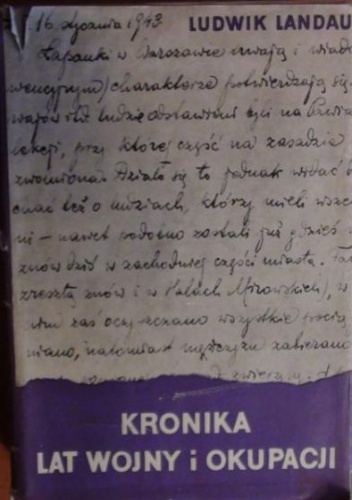 16 stycznia 1943
LUDWIK LANDAU
Łapanki w Warszawie trwają i wiado
wencyjnym) charakterze potwierdzają się
wajów itd. ludzie odstawieni byli na Pawia
lekcji, przy której część na zasadzie
zwolniona. Działo się to jednak widać
chać też o ludziach, którzy mieli wsze
ni – nawet podobno zostali już gdzieś
znów dziś w zachodniej części miasta.
zresztą znów i w Halach Mirowskich), w
nim zaś oczyszczano wszystkie pocią
miano, natomiast mężczyzn zabierano
KRONIKA
LAT WOJNY i OKUPACJI